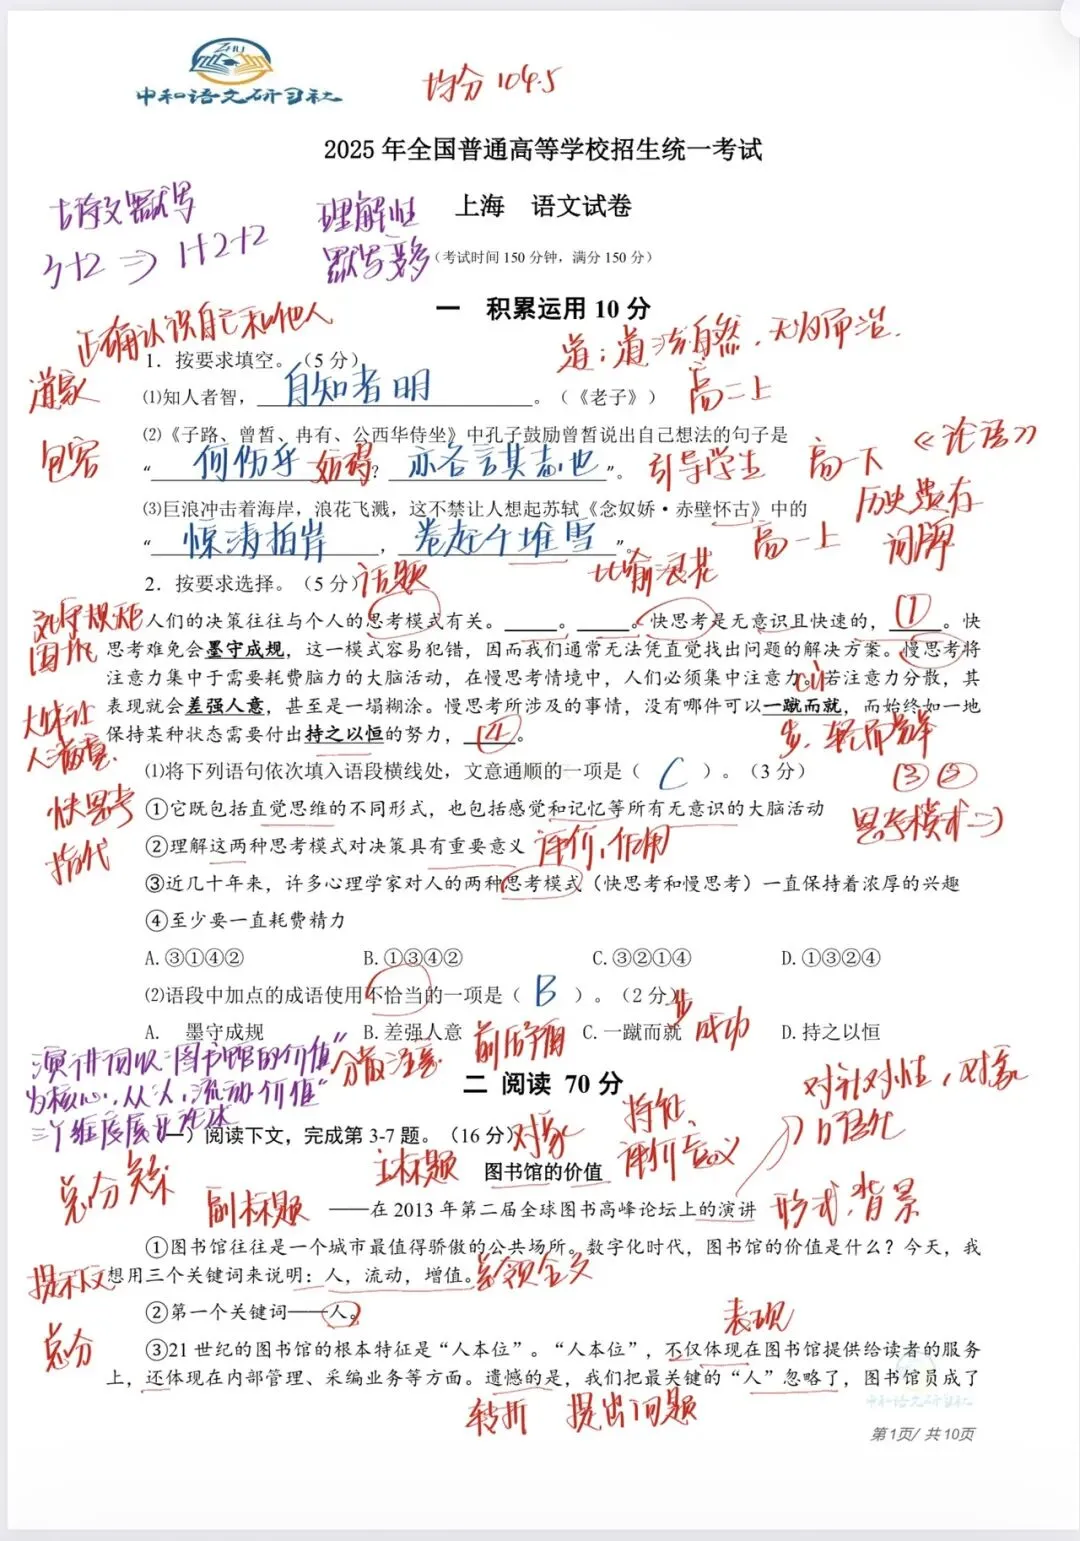 ZHU
中和语文研习社
均分 104.5
2025 年全国普通高等学校招生统一考试
古诗文默写
理解性
上海 语文试卷
3+2 ⇒ 1+2+2
默写变多
（考试时间 150 分钟，满分 150 分）
一 积累运用 10 分
正确认识自己和他人
道：道法自然，无为而治.
1. 按要求填空。（5 分）
道家
⑴知人者智，自知者明。（《老子》）
高二上
⑵《子路、曾皙、冉有、公西华侍坐》中孔子鼓励曾皙说出自己想法的句子是
包容
“何伤乎？亦各言其志也”。
引导学生
高一下
《论语》
⑶巨浪冲击着海岸，浪花飞溅，这不禁让人想起苏轼《念奴娇·赤壁怀古》中的
“惊涛拍岸，卷起千堆雪”。
高一上
词牌
2. 按要求选择。（5 分）
话题
比喻浪花
人们的决策往往与个人的思考模式有关。______。______。快思考是无意识且快速的，①。快
思考难免会墨守成规，这一模式容易犯错，因而我们通常无法凭直觉找出问题的解决方案。慢思考将
注意力集中于需要耗费脑力的大脑活动，在慢思考情境中，人们必须集中注意力。若注意力分散，其
表现就会差强人意，甚至是一塌糊涂。慢思考所涉及的事情，没有哪件可以一蹴而就，而始终如一地
大体让
人满意
保持某种状态需要付出持之以恒的努力，④。
cù
⑴将下列语句依次填入语段横线处，文意通顺的一项是（ C ）。（3 分）
③②
快思考
指代
①它既包括直觉思维的不同形式，也包括感觉和记忆等所有无意识的大脑活动
思考模式⇒
②理解这两种思考模式对决策具有重要意义
评价，作用
③近几十年来，许多心理学家对人的两种思考模式（快思考和慢思考）一直保持着浓厚的兴趣
④至少要一直耗费精力
A.③①④② B.①③④② C.③②①④ D.①③②④
⑵语段中加点的成语使用不恰当的一项是（ B ）。（2 分）
A. 墨守成规 B.差强人意 C.一蹴而就 D.持之以恒
成功
前后矛盾
分散注意
演讲词以“图书馆的价值”
为核心，从“人，流动，价值”
三个维度展开论述
二 阅读 70 分
针对性，对象
口语化
（一）阅读下文，完成第 3-7 题。（16 分）
对象
特征、
评价意义
主标题
图书馆的价值
总分关系
副标题
——在 2013 年第二届全球图书高峰论坛上的演讲
形式，背景
①图书馆往往是一个城市最值得骄傲的公共场所。数字化时代，图书馆的价值是什么？今天，我
想用三个关键词来说明：人，流动，增值。
总领全文
提示下文
②第一个关键词——人。
表现
总分
③21 世纪的图书馆的根本特征是“人本位”。“人本位”，不仅体现在图书馆提供给读者的服务
上，还体现在内部管理、采编业务等方面。遗憾的是，我们把最关键的“人”忽略了，图书馆员成了
中和语文研习社
转折 提出问题
第1页/ 共10页